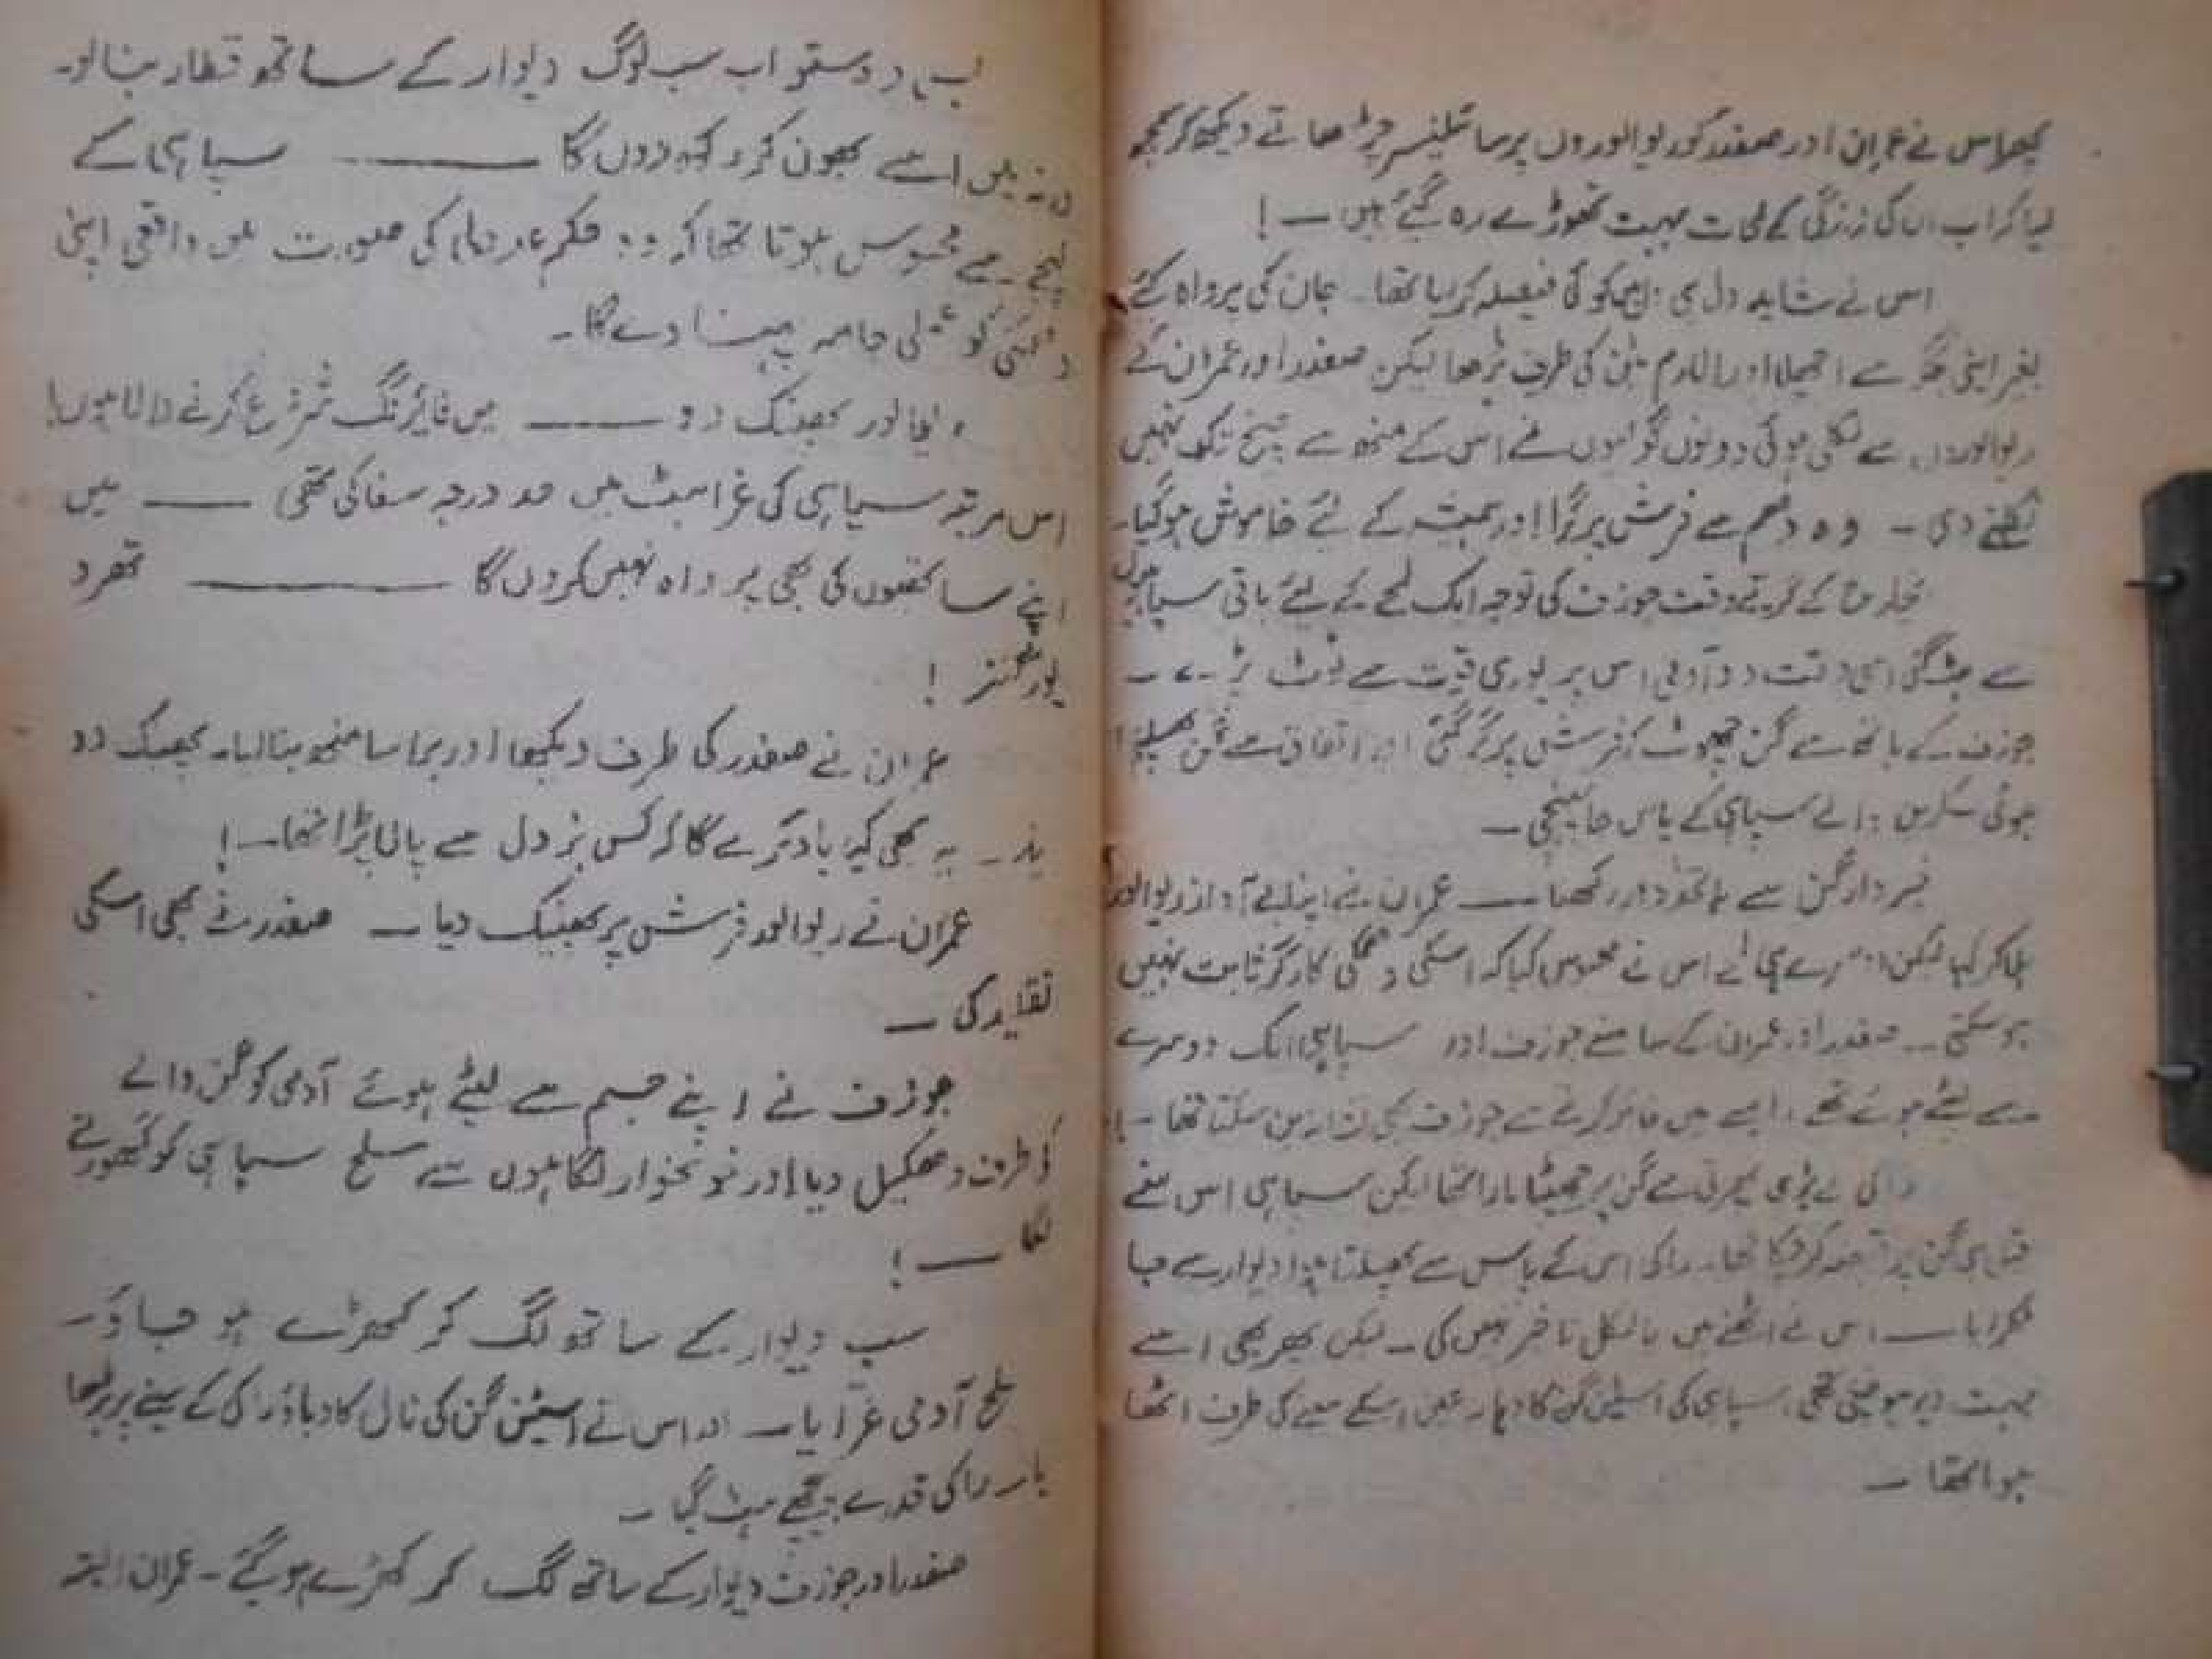 اس نے عمران اور صفدر کو ریوالوروں پر سائلینسر چڑھاتے دیکھ کر سمجھ
لیا کہ اب ان کی زندگی کے لمحات بہت تھوڑے رہ گئے ہیں — !
اس نے شاید دل ہی کوئی فیصلہ کر لیا تھا۔ جان کی پرواہ کئے
بغیر اپنی جگہ سے اچھلا اور الارم بٹن کی طرف بڑھا لیکن صفدر اور عمران کے
ریوالوروں سے نکلی ہوئی دونوں گولیوں نے اس کے منہ سے چیخ تک نہیں
نکلنے دی — وہ دھم سے فرش پر گرا اور ہمیشہ کے لئے خاموش ہو گیا۔
کے گرتے وقت جوزف کی توجہ ایک لمحے کے لئے باقی سپاہیوں
سے ہٹ گئی اسی وقت دو آدمی اس پر پوری قوت سے ٹوٹ پڑے —
جوزف کے ہاتھ سے گن چھوٹ کر فرش پر گر گئی اور اتفاق سے گن پھسلتی
ہوئی والے سپاہی کے پاس جا پہنچی —
خبردار گن سے ہاتھ دور رکھنا — عمران نے اپنا بے آواز ریوالور
ہلا کر کہا لیکن دوسرے ہی لمحے اس نے محسوس کیا کہ اسکی دھمکی کارگر ثابت نہیں
ہو سکتی — صفدر اور عمران کے سامنے جوزف اور سپاہی ایک دوسرے
سے لپٹے ہوئے تھے، ایسے میں فائر کرنے سے جوزف بھی بن سکتا تھا — !
نے بڑی پھرتی سے گن پر جھپٹا مارا تھا لیکن سپاہی اس سے
ہی گن پر قبضہ کر چکا تھا۔ راکی اس کے پاس سے پھسلتا ہوا دیوار سے جا
ٹکرایا — اس نے اٹھنے میں بالکل تاخیر نہیں کی — لیکن پھر بھی اسے
بہت دیر ہو چکی تھی، سپاہی کی اسٹین گن کا دہانہ عین اسکے سینے کی طرف اٹھا
ہوا تھا —
دوستو اب سب لوگ دیوار کے ساتھ قطار بنا لو۔
ورنہ میں اسے بھون کر رکھ دوں گا — سپاہی کے
لہجے سے محسوس ہوتا تھا کہ وہ حکم کی صورت میں واقعی اپنی
دھمکی کو عملی جامہ پہنا دے گا۔
ریوالور پھینک دو — میں فائرنگ شروع کرنے والا ہوں!
اس مرتبہ سپاہی کی غراہٹ میں حد درجہ سفاکی تھی — میں
اپنے ساتھیوں کی بھی پرواہ نہیں کروں گا — تھرو
یور گنز !
عمران نے صفدر کی طرف دیکھا اور برا سا منھ بنا لیا۔ پھینک دو
یار — یہ بھی کیا یاد کرے گا کہ کس بزدل سے پالا پڑا تھا — !
عمران نے ریوالور فرش پر پھینک دیا — صفدر نے بھی اسکی
تقلید کی —
جوزف نے اپنے جسم سے لپٹے ہوئے آدمی کو گن والے
کی طرف دھکیل دیا اور خونخوار نگاہوں سے مسلح سپاہی کو گھورنے
لگا — !
سب دیوار کے ساتھ لگ کر کھڑے ہو جاؤ —
مسلح آدمی غرایا — اور اس نے اسٹین گن کی نال کا دباؤ راکی کے سینے پر بڑھا
راکی قدرے پیچھے ہٹ گیا —
صفدر اور جوزف دیوار کے ساتھ لگ کر کھڑے ہو گئے — عمران البتہ